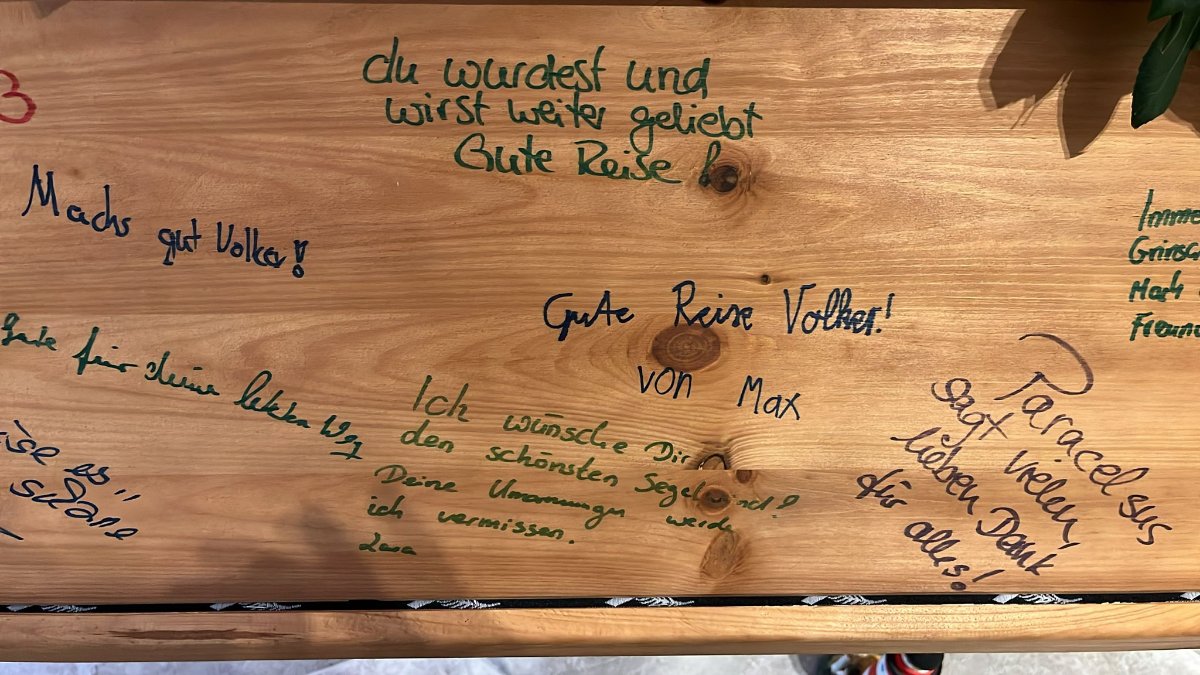 3
du wurdest und
wirst weiter geliebt
Gute Reise !
Machs gut Volker!
Gute Reise Volker!
von Max
Gute für deine letzten Weg
Ich wünsche Dir
den schönsten Segelwind!
Deine Umarmungen werde
ich vermissen.
Lara
Paracelsus
sagt vielen,
lieben Dank
für alles!
Imme
Grinsc
Mach
Freun
ise es"